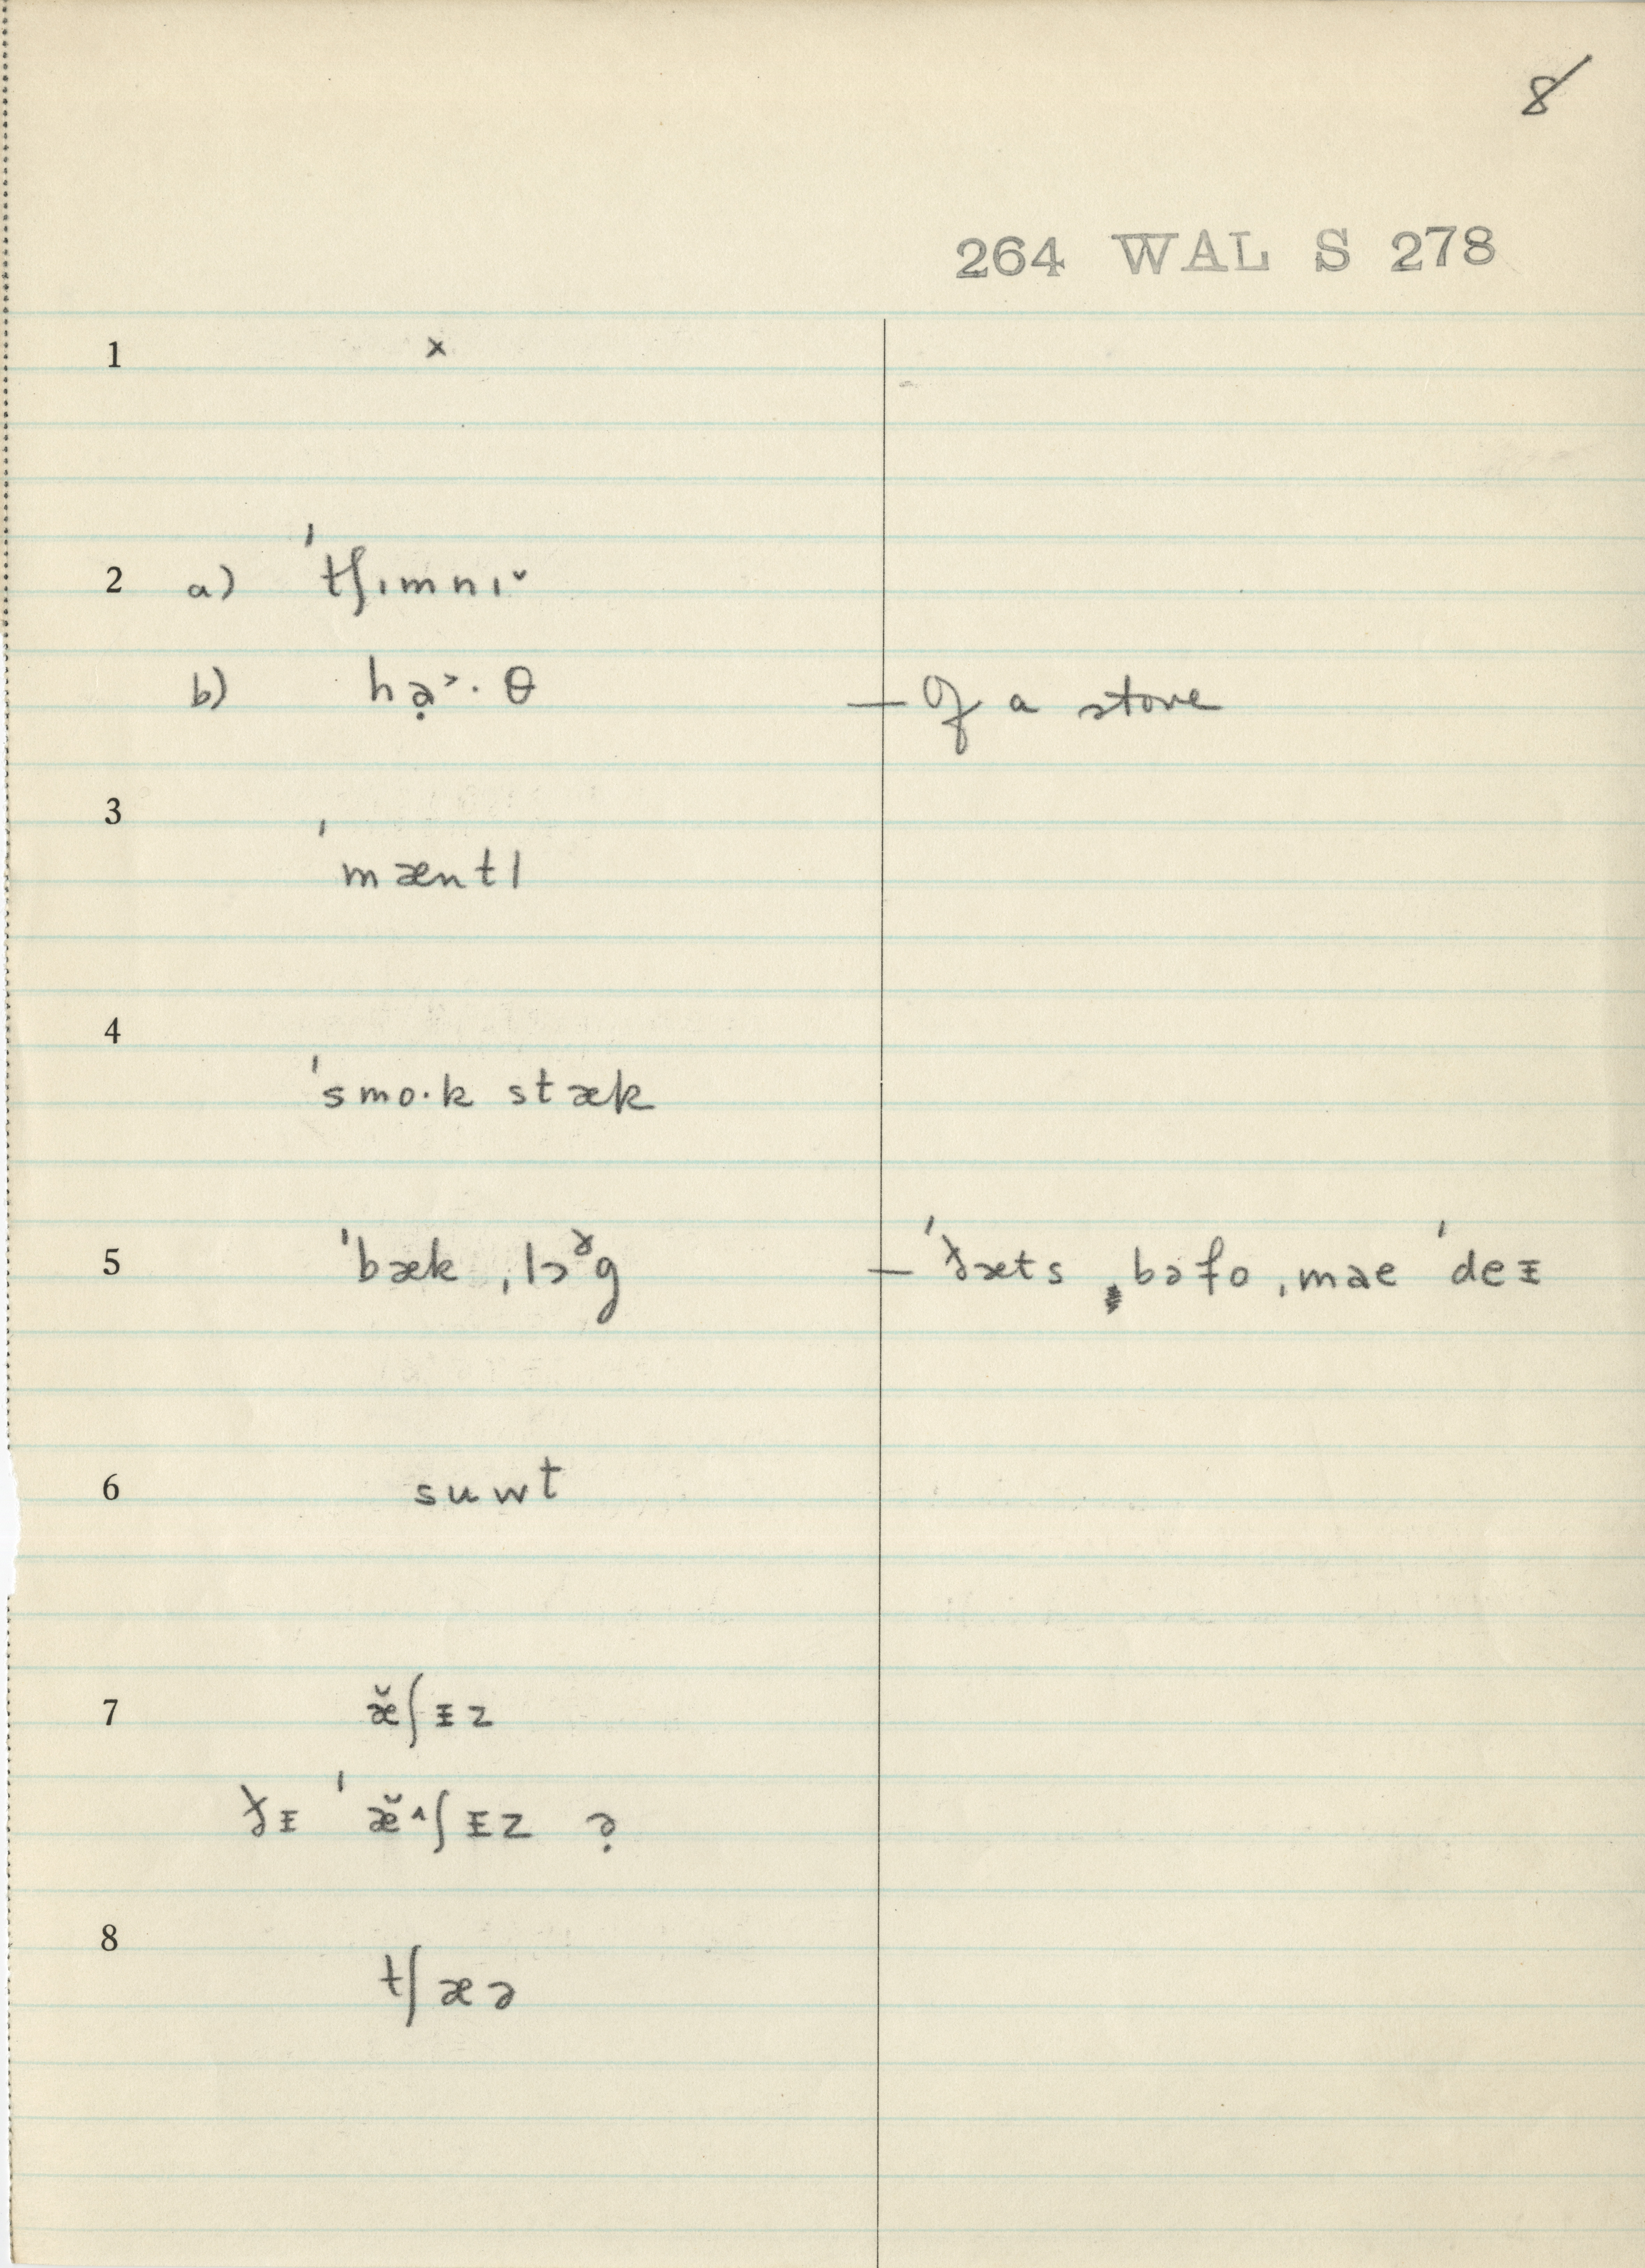 8
264 WAL S 278
1 x
2 a) ˈtʃɪmnɪ˅
b) hạ˃·θ — Of a stove
3 ˈmæntl
4 ˈsmo·k stæk
5 ˈbæk ˌlɔᵟg — ˈðæts bəfo ˌmae ˈdeɪ
6 suwt
7 æ̆ʃɪz
ðɪ ˈæ̆˄ʃɪz ?
8 tʃæə